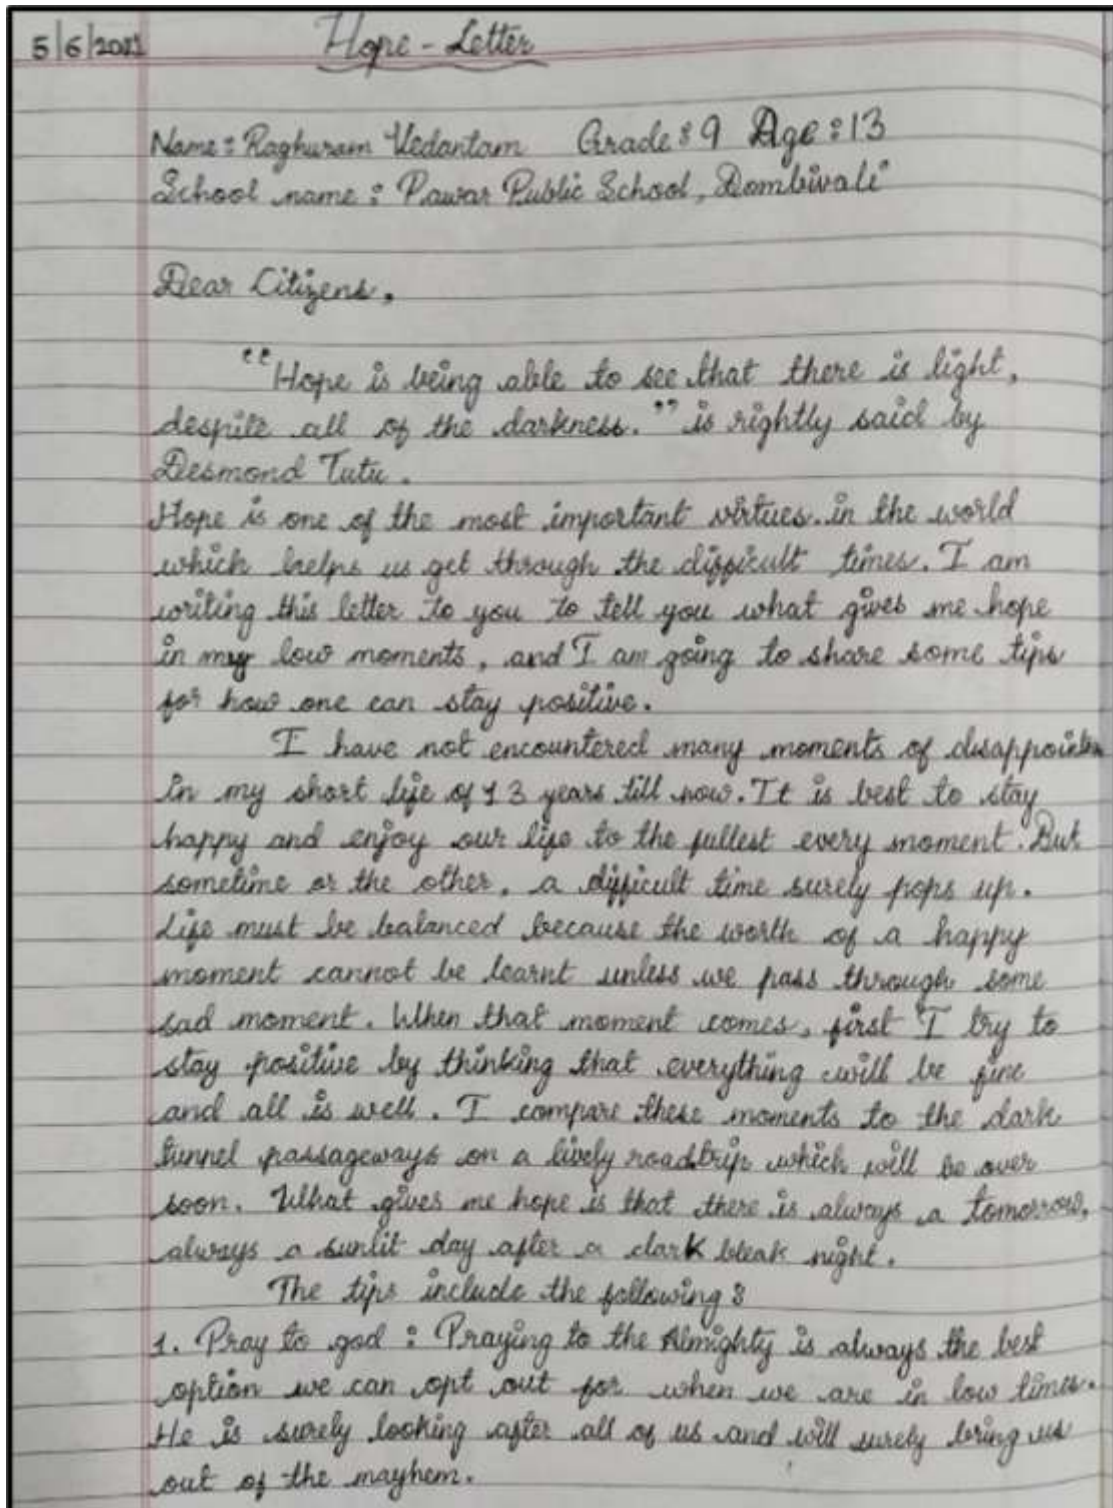 5/6/2021 Hope - Letter
Name : Raghuram Vedantam Grade : 9 Age : 13
School name : Pawar Public School, Dombivali
Dear Citizens,
"Hope is being able to see that there is light,
despite all of the darkness." is rightly said by
Desmond Tutu.
Hope is one of the most important virtues in the world
which helps us get through the difficult times. I am
writing this letter to you to tell you what gives me hope
in my low moments, and I am going to share some tips
for how one can stay positive.
I have not encountered many moments of disappointm
in my short life of 13 years till now. It is best to stay
happy and enjoy our life to the fullest every moment. But
sometime or the other, a difficult time surely pops up.
Life must be balanced because the worth of a happy
moment cannot be learnt unless we pass through some
sad moment. When that moment comes, first I try to
stay positive by thinking that everything will be fine
and all is well. I compare these moments to the dark
tunnel passageways on a lively roadtrip which will be over
soon. What gives me hope is that there is always a tomorrow,
always a sunlit day after a dark bleak night.
The tips include the following :
1. Pray to god : Praying to the Almighty is always the best
option we can opt out for when we are in low times.
He is surely looking after all of us and will surely bring us
out of the mayhem.